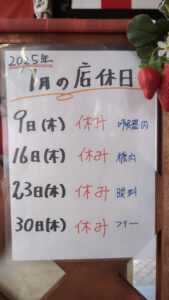 2025年
1月の店休日
9日(木) 休み 呼吸器内
16日(木) 休み 糖内
23日(木) 休み 眼科
30日(木) 休み フリー